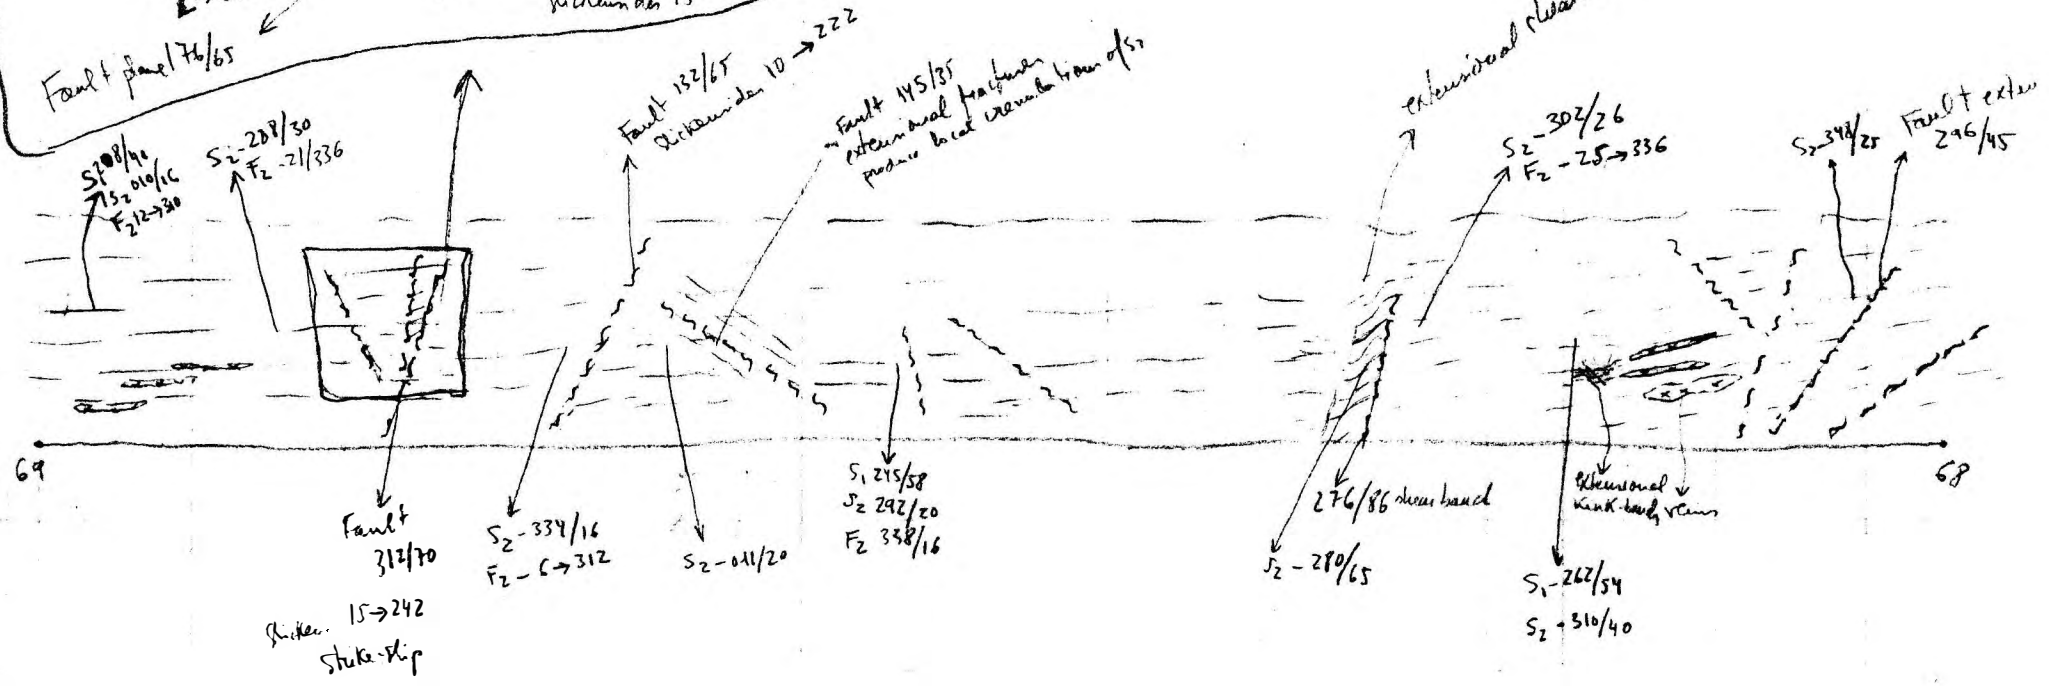 Fault plane 176/65
010/16
F2 12→310
S2-208/30
F2-21/336
Fault 132/65
slickensides 10→222
Fault 145/35
extensional fractures
produce local crenulations of S2
extensional shear
S2-302/26
F2-25→336
S2-348/25
Fault exten
296/45
69
68
Fault
312/70
Slicken. 15→242
strike-slip
S2-334/16
F2-6→312
S2-011/20
S1 245/58
S2 292/20
F2 338/16
276/86 shear band
S2-280/65
extensional
kink-bands, veins
S1-262/54
S2-310/40